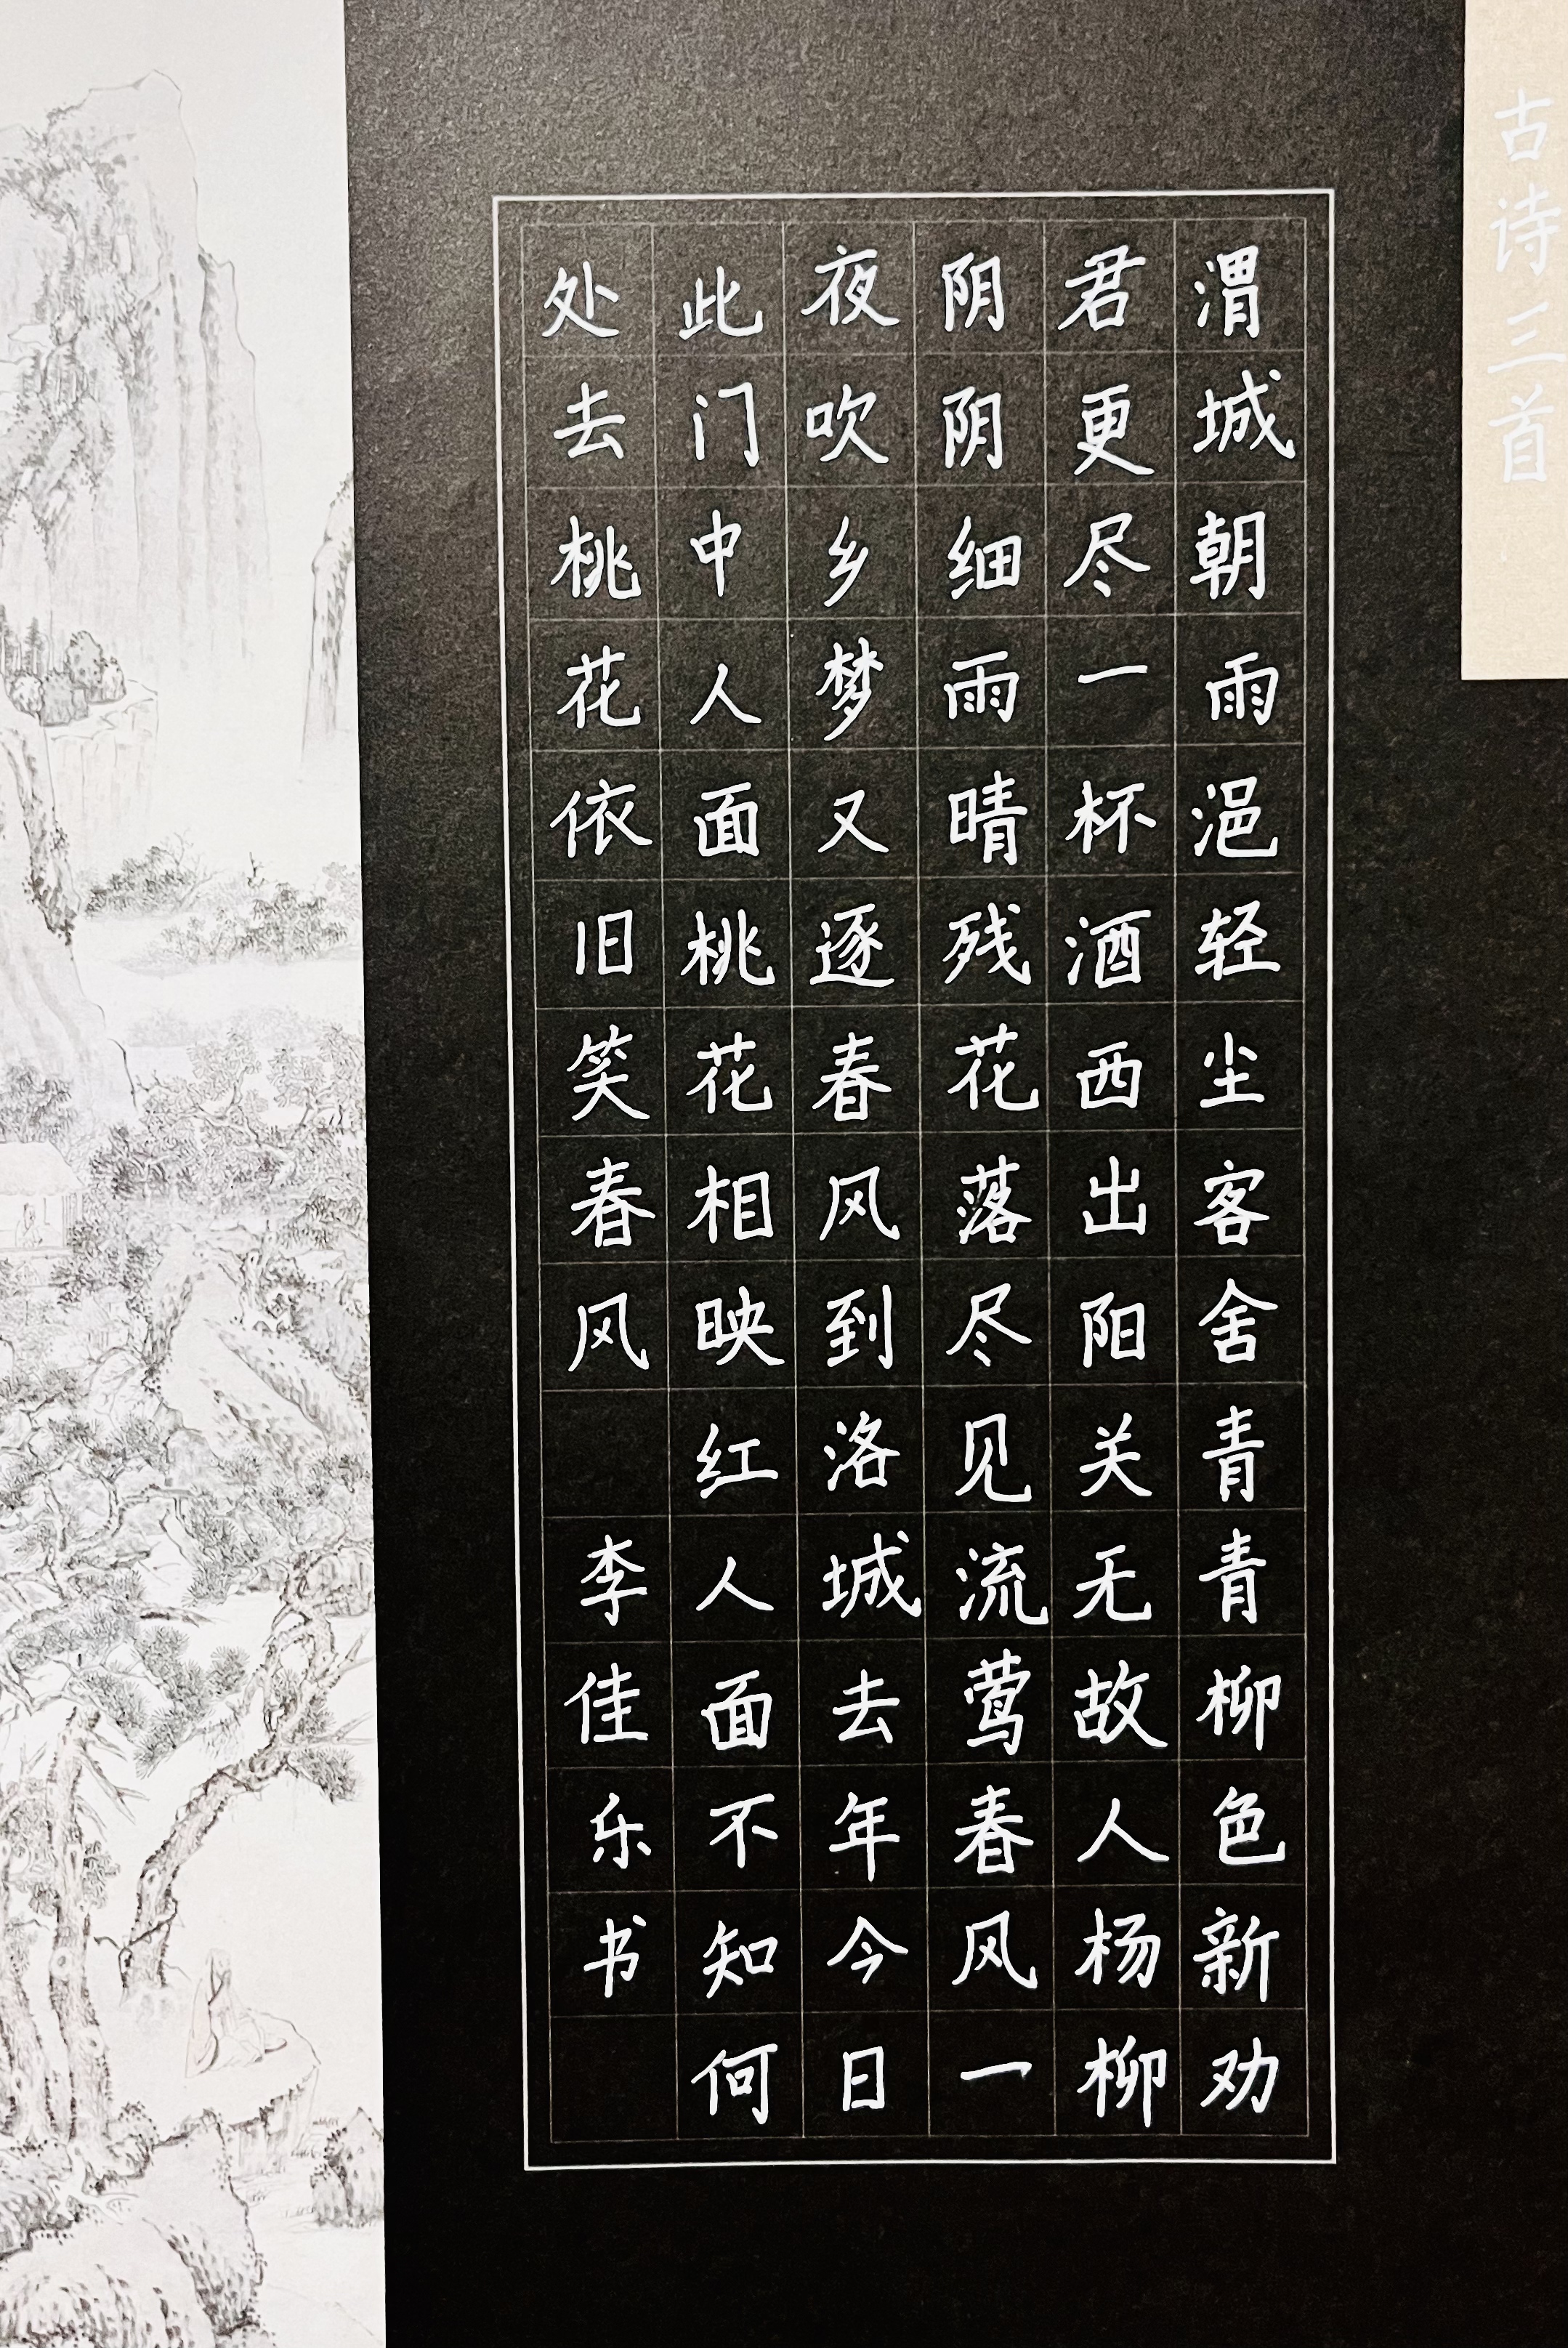 古诗三首
渭城朝雨浥轻尘客舍青青柳色新劝
君更尽一杯酒西出阳关无故人杨柳
阴阴细雨晴残花落尽见流莺春风一
夜吹乡梦又逐春风到洛城去年今日
此门中人面桃花相映红人面不知何
处去桃花依旧笑春风 李佳乐书